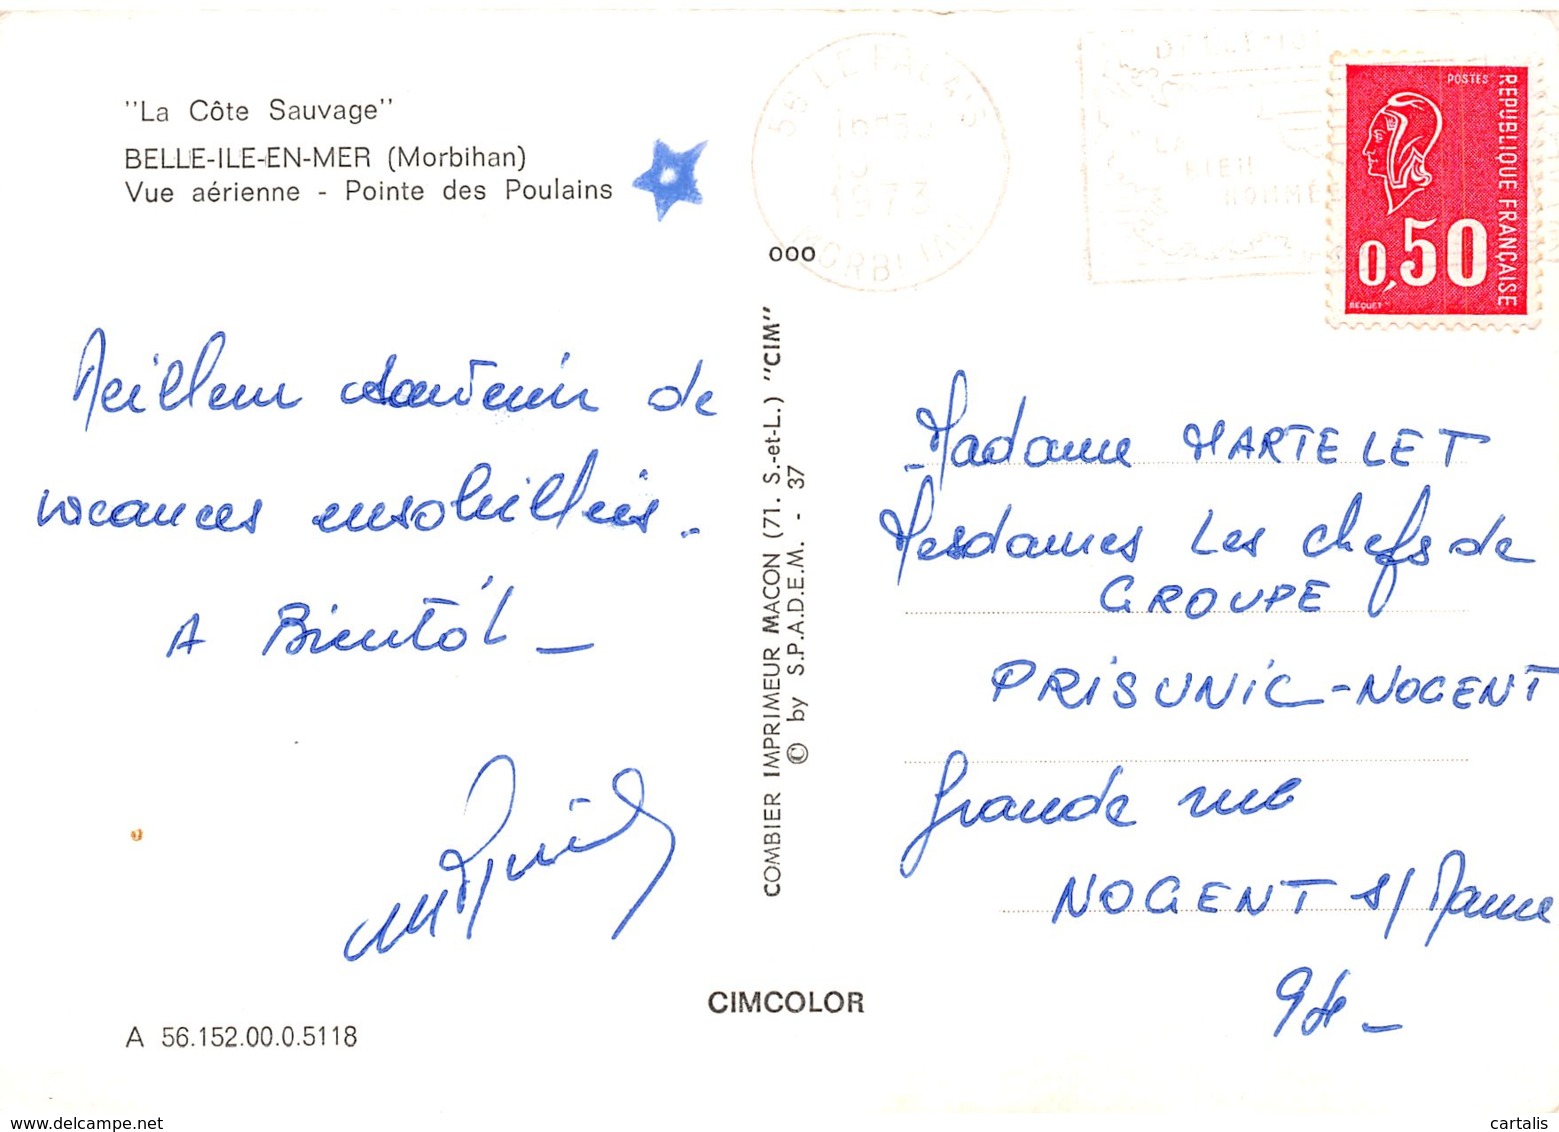 "La Côte Sauvage"
BELLE-ILE-EN-MER (Morbihan)
Vue aérienne - Pointe des Poulains
Meilleur souvenir de
vacances ensoleillées.
A Bientôt -
A 56.152.00.0.5118
ooo
COMBIER IMPRIMEUR MACON (71. S.-et-L.) "CIM"
© by S.P.A.D.E.M. - 37
CIMCOLOR
56 LE PALAIS
1973
MORBIHAN
LA
BIEN
NOMMÉE
POSTES
REPUBLIQUE FRANÇAISE
0,50
BEQUET
Madame MARTELET
Mesdames Les chefs de
GROUPE
PRISUNIC-NOGENT
Grande rue
NOGENT s/ Marne
94 -
delcampe.net
cartalis